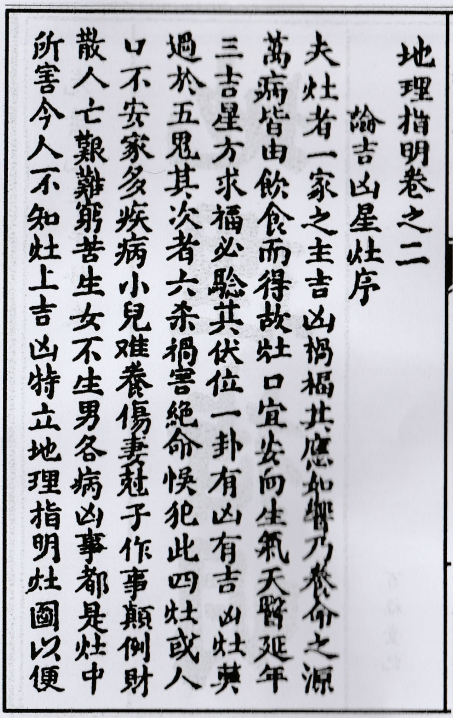 地理指明卷之二
論吉凶星灶序
夫灶者一家之主吉凶禍福其應如響乃養命之源
萬病皆由飲食而得故灶口宜安向生氣天醫延年
三吉星方求福必驗其伏位一卦有凶有吉凶灶莫
過於五鬼其次者六杀禍害絕命悞犯此四灶或人
口不安家多疾病小兒难養傷妻尅子作事顛倒財
散人亡艱難窮苦生女不生男各病凶事都是灶中
所害今人不知灶上吉凶特立地理指明灶圖以便